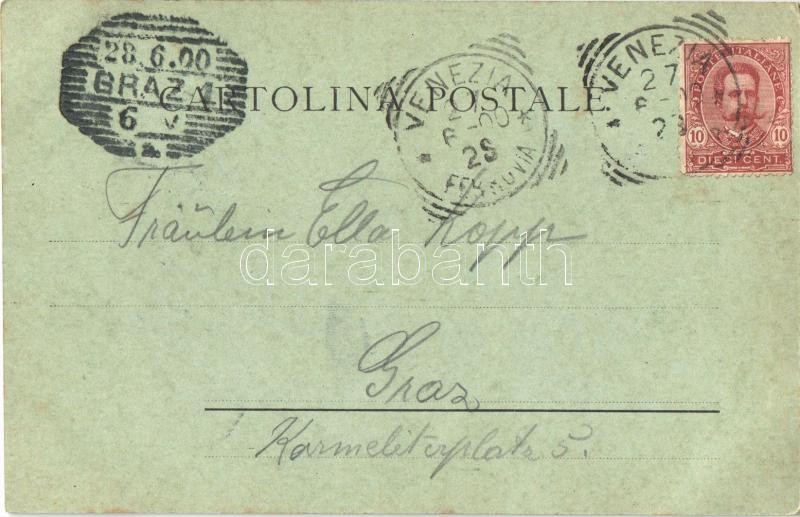 28.6.00
GRAZ
6 V
CARTOLINA POSTALE
VENEZIA
6-00
28
FERROVIA
VENEZIA
27
28
POSTE ITALIANE
10 10
DIECI CENT.
Fräulein Ella Kopp
darabanth
Graz
Karmeliterplatz 5.